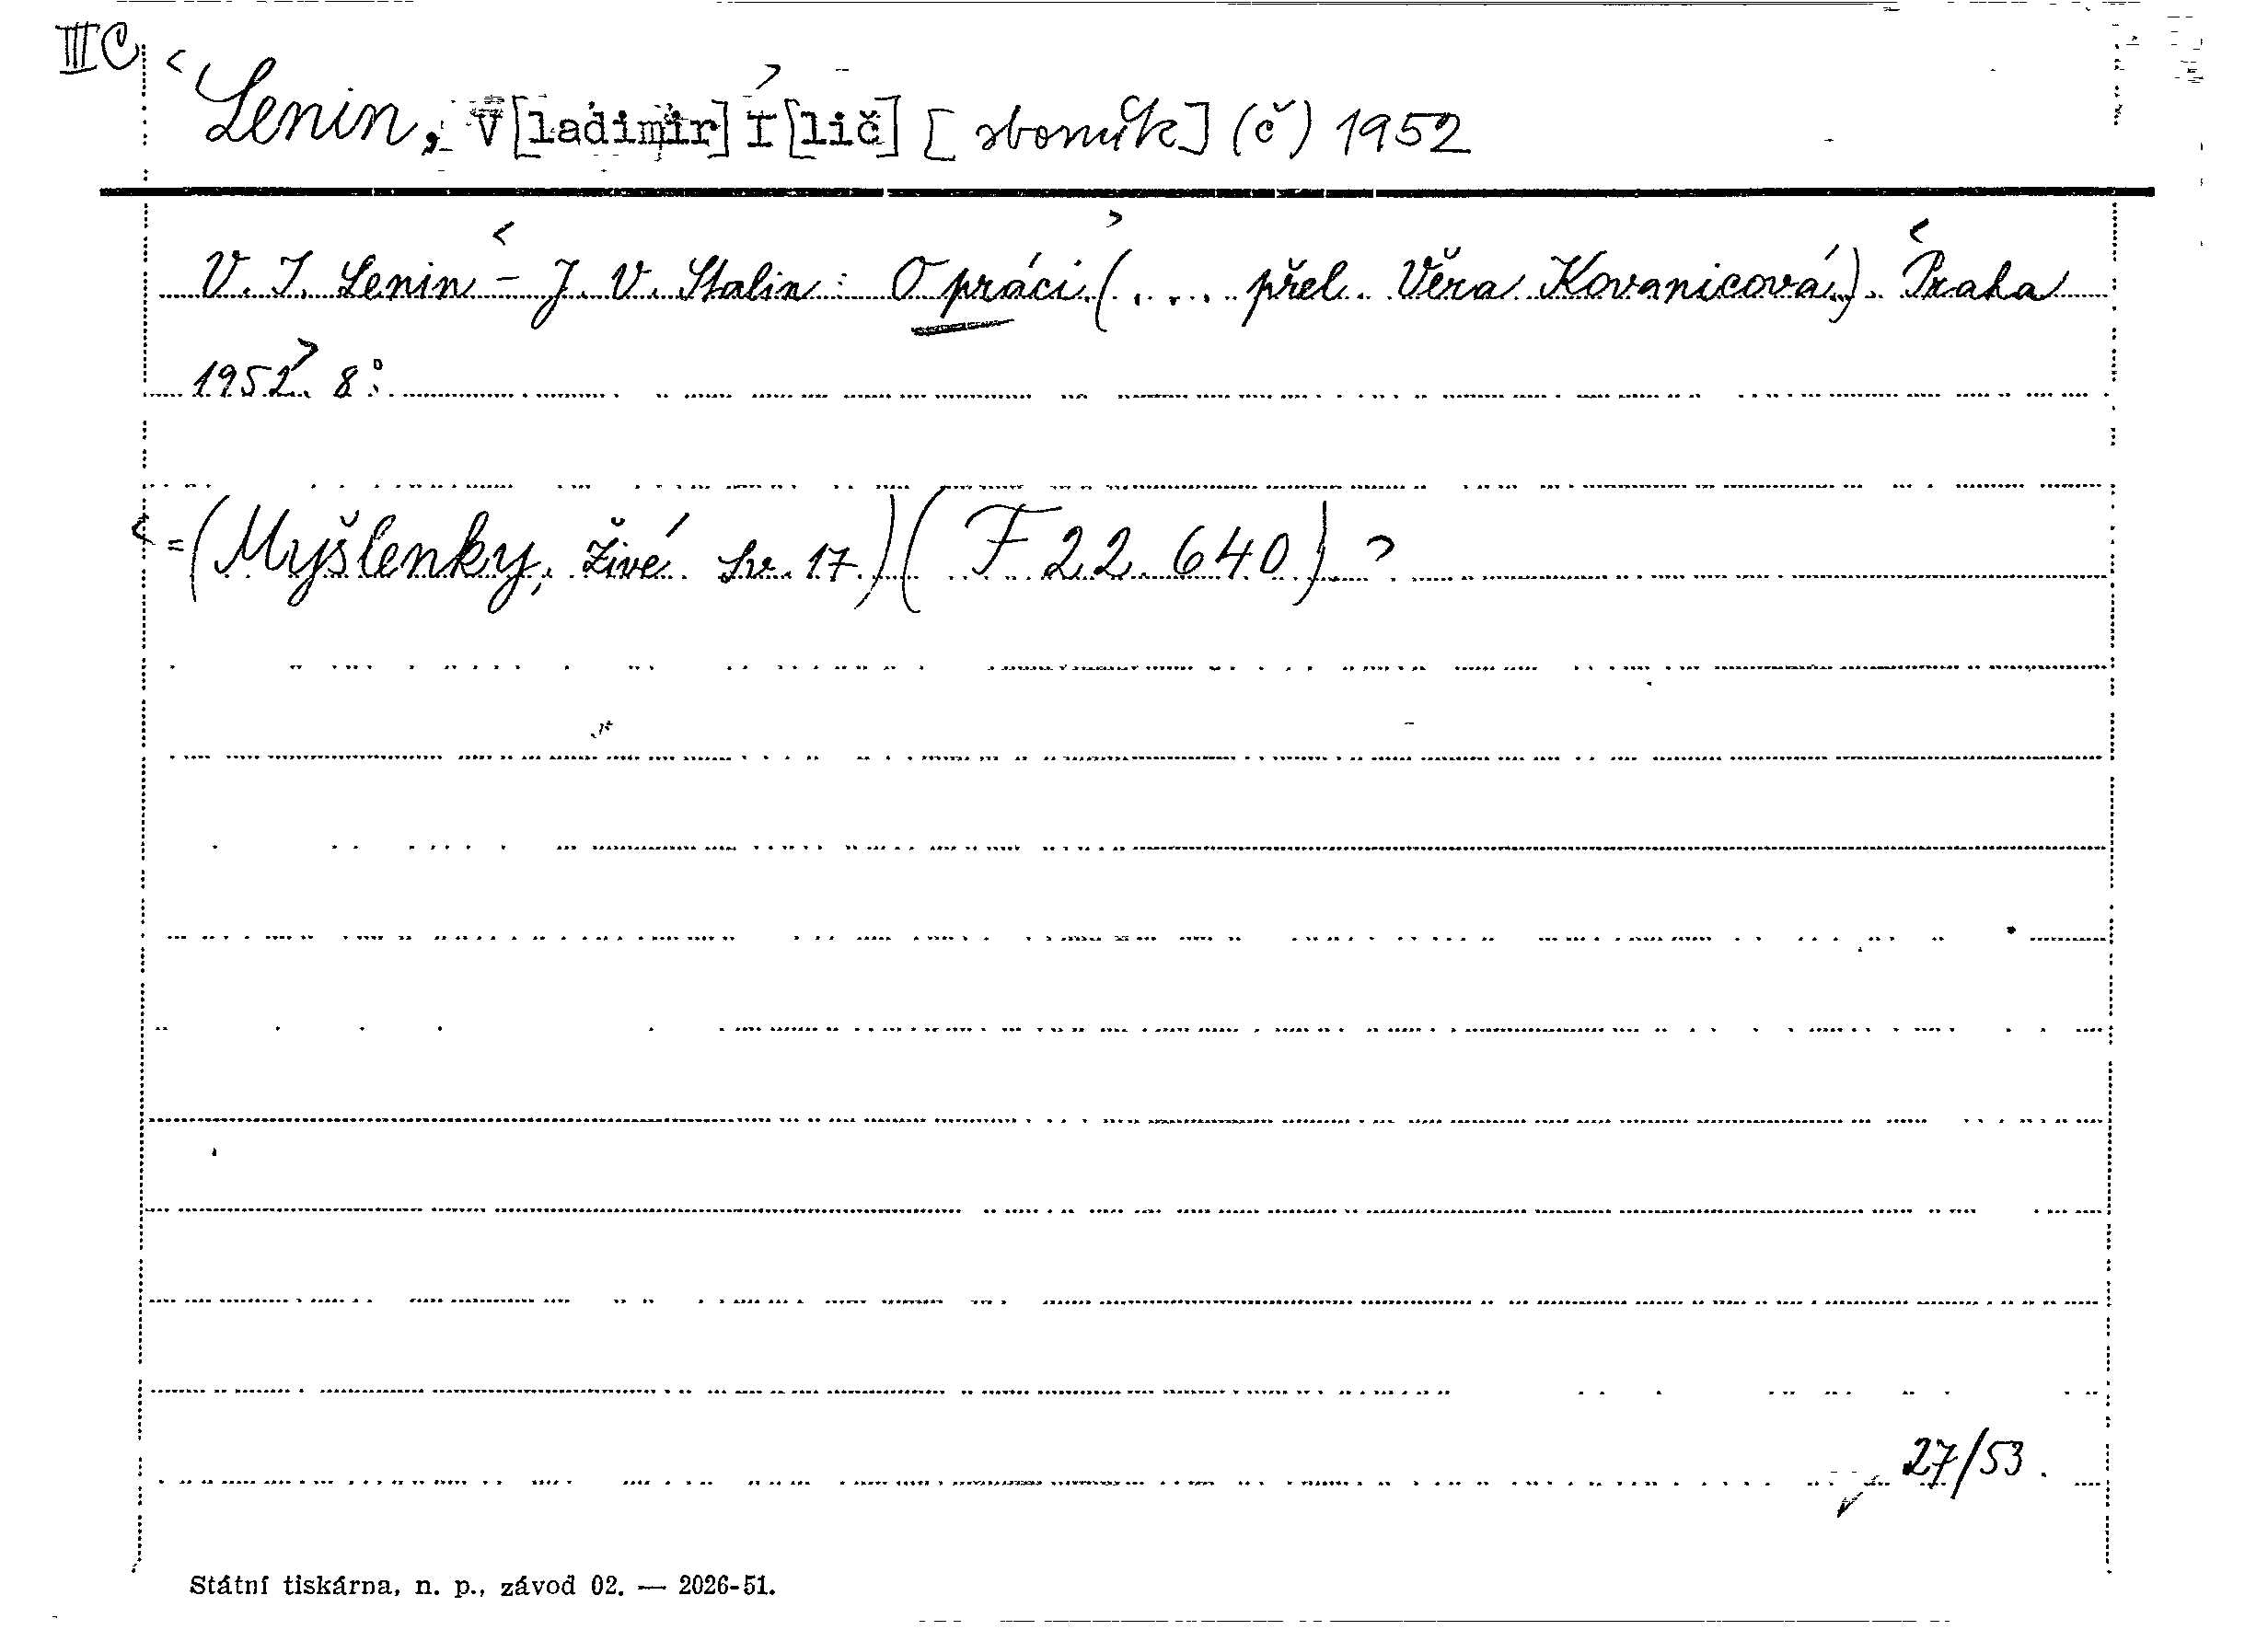 IIIC
Lenin, V[ladimir] I[lič] [sborník] (č) 1952
V. I. Lenin - J. V. Stalin: O práci. (. ... přel. Věra Kovanicová.). Praha
1952. 8°.
=(Myšlenky, živé sv. 17.) (F 22.640)
27/53.
Státní tiskárna, n. p., závod 02. — 2026-51.